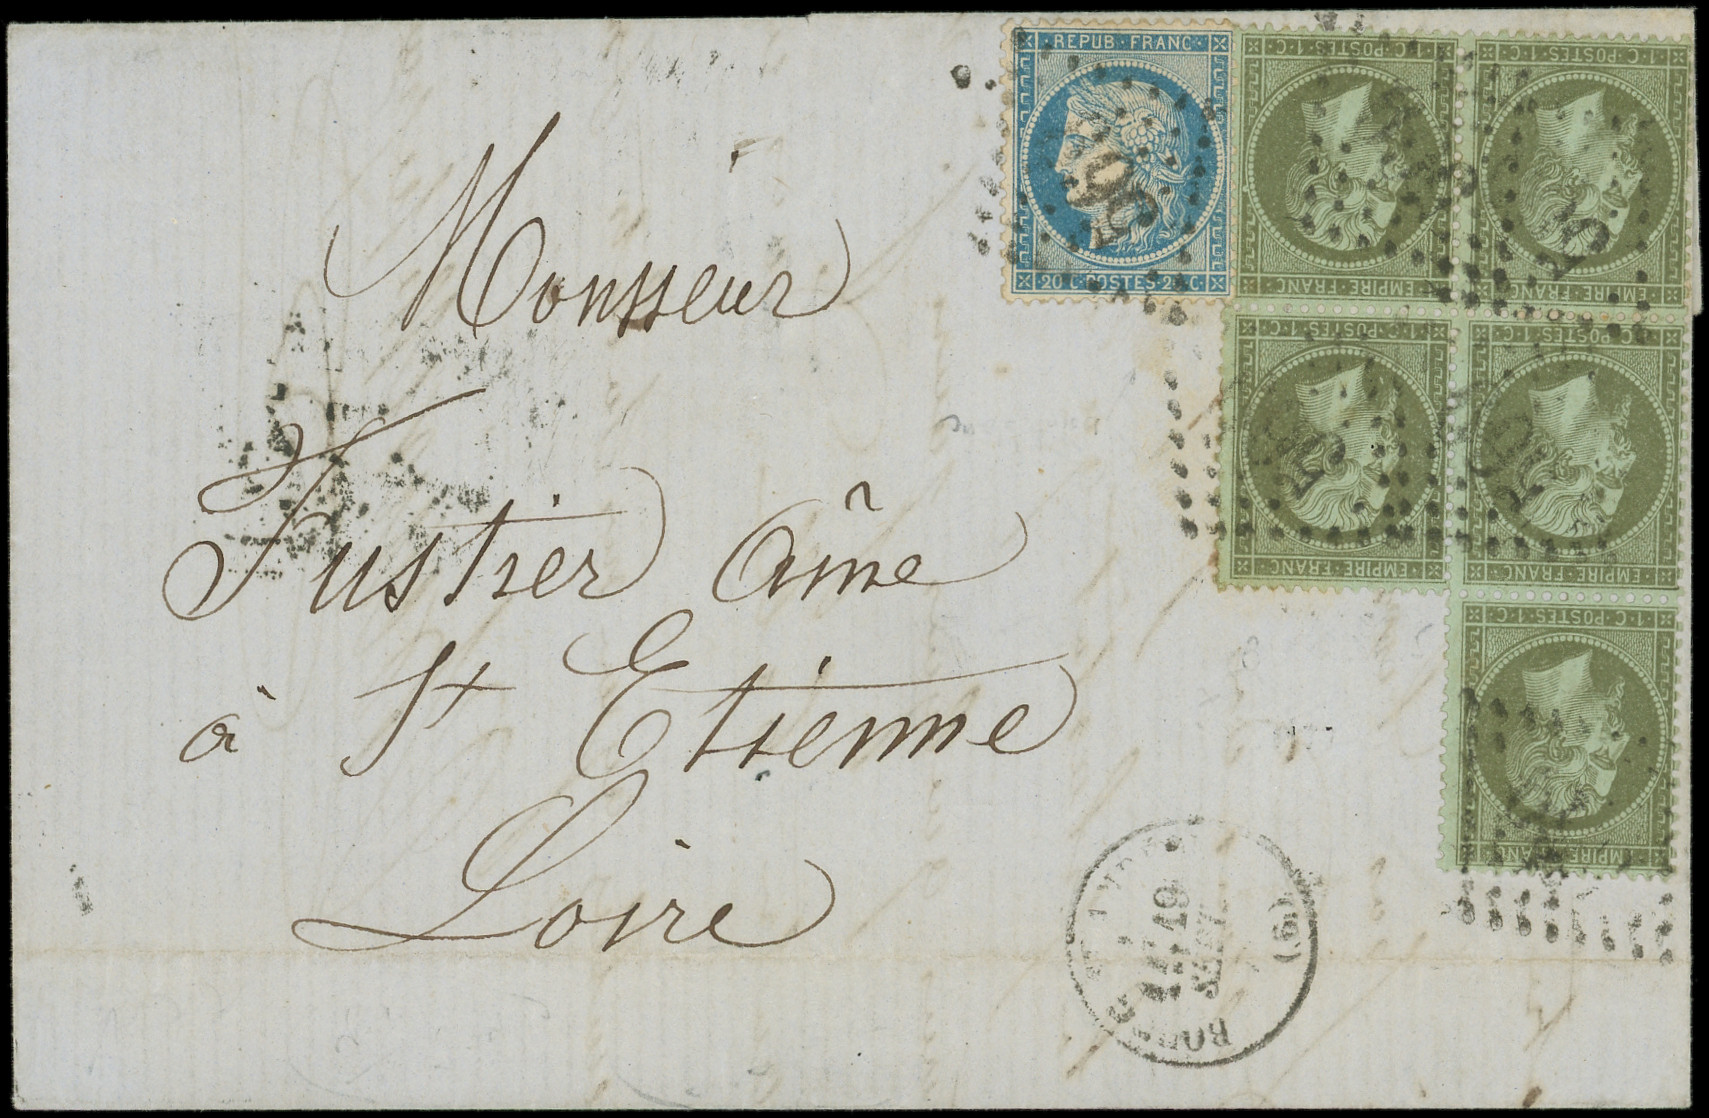 REPUB·FRANC
20·C·POSTES·20·C
1·C·POSTES·1·C
EMPIRE·FRANC
1·C·POSTES·1·C
EMPIRE·FRANC
1·C·POSTES·1·C
EMPIRE·FRANC
1·C·POSTES·1·C
EMPIRE·FRANC
1·C·POSTES·1·C
EMPIRE·FRANC
Monsieur
Fustier Aîné
à St Etienne
Loire
19
(6)